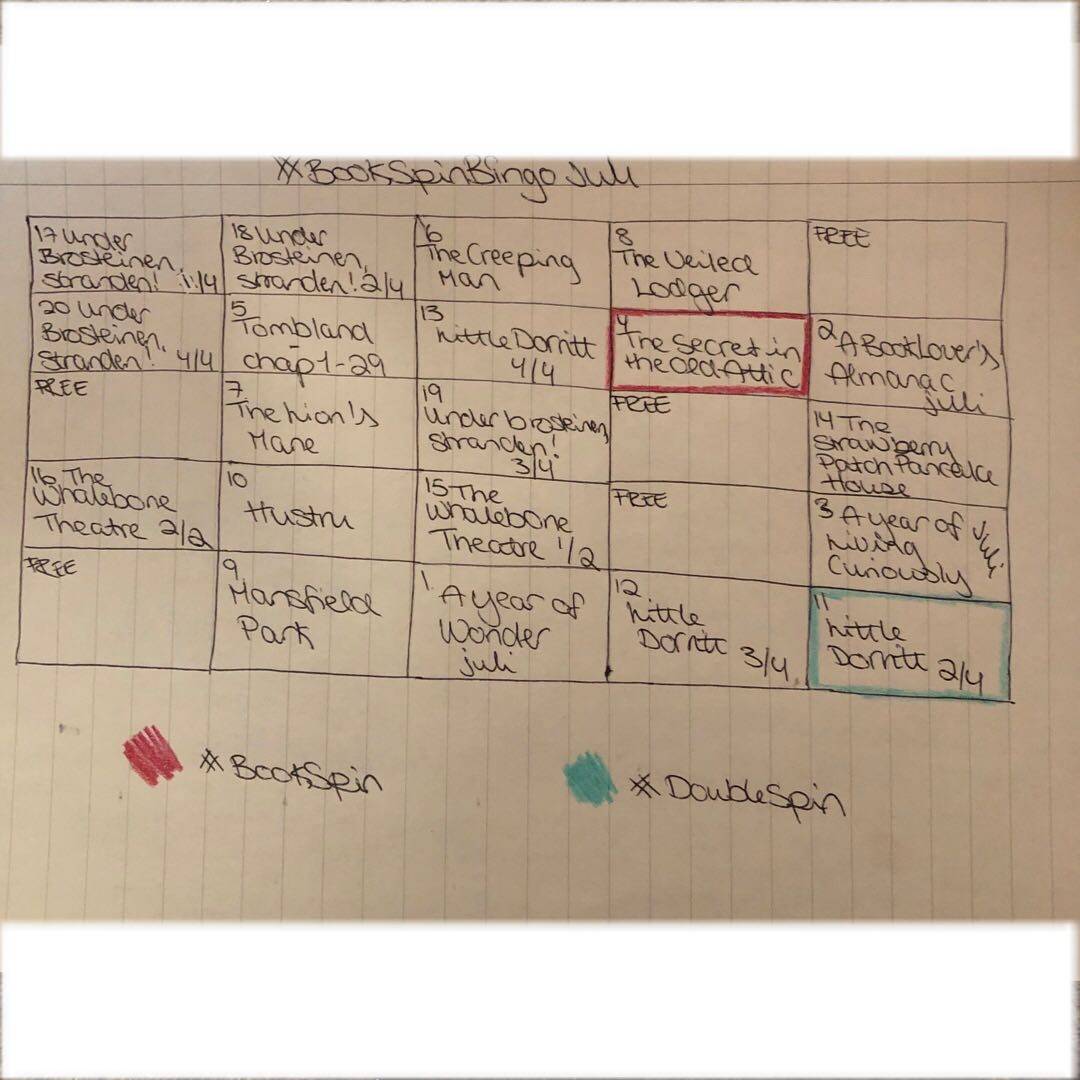 #BookSpinBingo Juli
17 Under
Brosteinen,
stranden! 1/4
18 Under
Brosteinen,
stranden! 2/4
6
The Creeping
Man
8
The Veiled
Lodger
FREE
20 Under
Brosteinen,
Stranden! 4/4
5
Tombland
chap 1-29
13
Little Dorritt
4/4
4
The Secret in
the Old Attic
2 A BookLover's
Almanac
juli
FREE
7
The Lion's
Mane
19
Under brosteinen,
stranden!
3/4
FREE
14 The
Strawberry
Patch Pancake
House
16 The
Whalebone
Theatre 2/2
10
Hustru
15 The
Whalebone
Theatre 1/2
FREE
3 A year of
Living
Curiously
Juli
FREE
9
Mansfield
Park
1 A year of
Wonder
juli
12
Little
Dorritt 3/4
11
Little
Dorritt 2/4
#BookSpin
#DoubleSpin